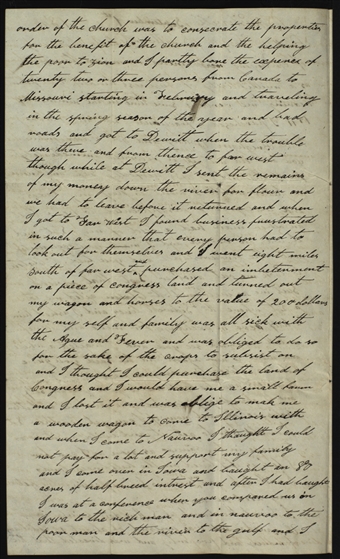 order of the church was to consecrate the properties
for the benefit of the church and the helping
the poor to zion and I partly bore the expence of
twenty two or three persons from Canada to
Missouri starting in Febuary and traveling
in the spring season of the year and bad
roads and got to Dewitt when the trouble
was there and from thence to far west
though while at Dewitt I sent the remains
of my money down the river for flour and
we had to leave before it returned and when
I got to Far West I found business frustrated
in such a manner that every person had to
look out for themselves and I went eight miles
South of far west purchased an
on a piece of Congress land and turned out
my wagon and horses to the value of 200 dollars
for my self and family was all sick with
the Ague and Fever and was obliged to do so
for the sake of the crops to subsist on
and I thought I could purchase the land of
Congress and I would have me a small farm
and I lost it and was oblige to mak me
a wooden wagon to come to Illinois with
and when I come to Nauvoo I thought I could
not pay for a lot and support my family
and I come over in Iowa and baught
acres of half breed intrest and after I had baught
I was at a conference when you compared us in
Iowa to the rich man and in nauvoo to the
poor man and the river to the gulf and I